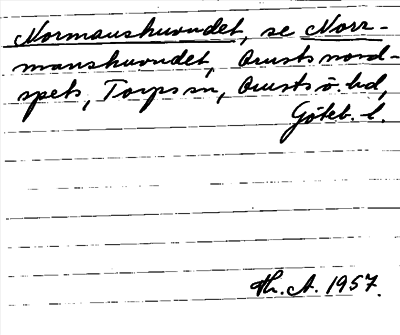 Normanshuvudet, se Norr-
manshuvudet, Orusts nord-
spets, Torps sn, Orusts ö. hd,
Göteb. l.
Th. A. 1957.